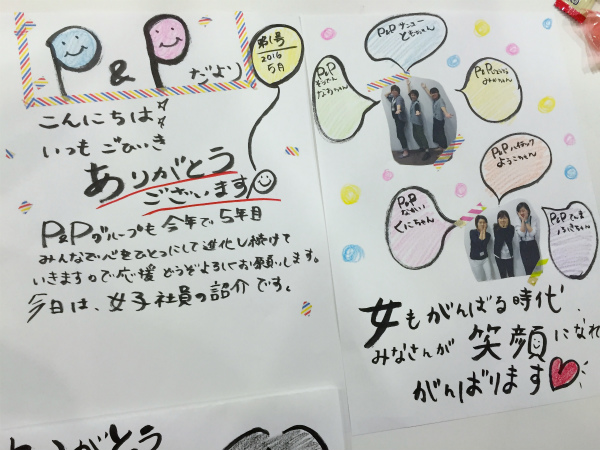 P&Pだより
第1号
2016
5月
こんにちは
いつもごひいき
ありがとう
ございます
P&Pグループも今年で5年目
みんなで心をひとつにして進化し続けて
いきますので応援どうぞよろしくお願いします。
今日は、女子社員の紹介です。
P&Pサンユー
ともちゃん
P&P
なおちゃん
P&P
みかちゃん
P&Pハイテック
ようこちゃん
P&P
くにちゃん
P&P
女もがんばる時代
みなさんが笑顔になれ
がんばります
ありがとう